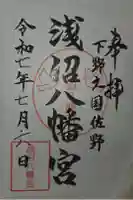 奉拝
下野之国佐野
浅沼八幡宮
令和七年七月六日